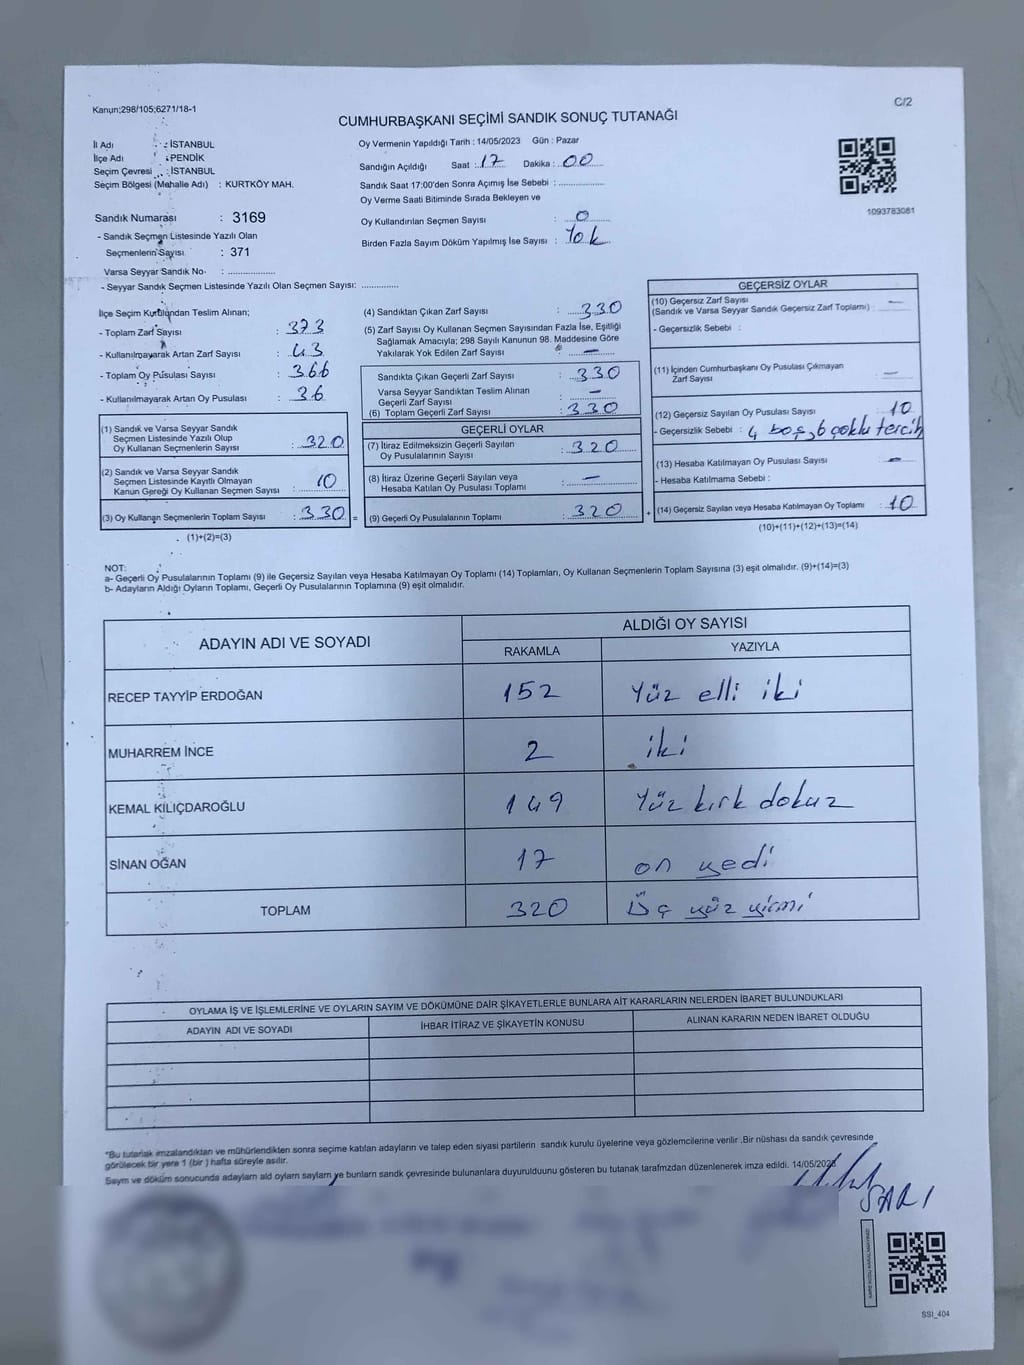 Kanun;298/105;6271/18-1
C/2
CUMHURBAŞKANI SEÇİMİ SANDIK SONUÇ TUTANAĞI
İl Adı : İSTANBUL
İlçe Adı : PENDİK
Seçim Çevresi : İSTANBUL
Seçim Bölgesi (Mahalle Adı) : KURTKÖY MAH.
Sandık Numarası : 3169
- Sandık Seçmen Listesinde Yazılı Olan
Seçmenlerin Sayısı : 371
Varsa Seyyar Sandık No- : ...................
- Seyyar Sandık Seçmen Listesinde Yazılı Olan Seçmen Sayısı: ..............
Oy Vermenin Yapıldığı Tarih : 14/05/2023 Gün : Pazar
Sandığın Açıldığı Saat : 17 Dakika : 00
Sandık Saat 17:00'den Sonra Açımış İse Sebebi : ................
Oy Verme Saati Bitiminde Sırada Bekleyen ve
Oy Kullandırılan Seçmen Sayısı : 0
Birden Fazla Sayım Döküm Yapılmış İse Sayısı : Yok
1093783081
İlçe Seçim Kurulundan Teslim Alınan;
- Toplam Zarf Sayısı : 373
- Kullanılmayarak Artan Zarf Sayısı : 43
- Toplam Oy Pusulası Sayısı : 366
- Kullanılmayarak Artan Oy Pusulası : 36
(1) Sandık ve Varsa Seyyar Sandık
Seçmen Listesinde Yazılı Olup
Oy Kullanan Seçmenlerin Sayısı : 320
(2) Sandık ve Varsa Seyyar Sandık
Seçmen Listesinde Kayıtlı Olmayan
Kanun Gereği Oy Kullanan Seçmen Sayısı : 10
(3) Oy Kullanan Seçmenlerin Toplam Sayısı : 330 =
(1)+(2)=(3)
(4) Sandıktan Çıkan Zarf Sayısı : 330
(5) Zarf Sayısı Oy Kullanan Seçmen Sayısından Fazla İse, Eşitliği
Sağlamak Amacıyla; 298 Sayılı Kanunun 98. Maddesine Göre
Yakılarak Yok Edilen Zarf Sayısı : —
Sandıkta Çıkan Geçerli Zarf Sayısı : 330
Varsa Seyyar Sandıktan Teslim Alınan
Geçerli Zarf Sayısı : —
(6) Toplam Geçerli Zarf Sayısı : 330
GEÇERLİ OYLAR
(7) İtiraz Edilmeksizin Geçerli Sayılan
Oy Pusulalarının Sayısı : 320
(8) İtiraz Üzerine Geçerli Sayılan veya
Hesaba Katılan Oy Pusulası Toplamı : —
(9) Geçerli Oy Pusulalarının Toplamı : 320 +
GEÇERSİZ OYLAR
(10) Geçersiz Zarf Sayısı
(Sandık ve Varsa Seyyar Sandık Geçersiz Zarf Toplamı) : —
- Geçersizlik Sebebi :
(11) İçinden Cumhurbaşkanı Oy Pusulası Çıkmayan
Zarf Sayısı : —
(12) Geçersiz Sayılan Oy Pusulası Sayısı : 10
- Geçersizlik Sebebi : 4 boş, 6 çoklu tercih
(13) Hesaba Katılmayan Oy Pusulası Sayısı : —
- Hesaba Katılmama Sebebi :
(14) Geçersiz Sayılan veya Hesaba Katılmayan Oy Toplamı : 10
(10)+(11)+(12)+(13)=(14)
NOT:
a- Geçerli Oy Pusulalarının Toplamı (9) ile Geçersiz Sayılan veya Hesaba Katılmayan Oy Toplamı (14) Toplamları, Oy Kullanan Seçmenlerin Toplam Sayısına (3) eşit olmalıdır. (9)+(14)=(3)
b- Adayların Aldığı Oyların Toplamı, Geçerli Oy Pusulalarının Toplamına (9) eşit olmalıdır.
ADAYIN ADI VE SOYADI
ALDIĞI OY SAYISI
RAKAMLA YAZIYLA
RECEP TAYYİP ERDOĞAN 152 Yüz elli iki
MUHARREM İNCE 2 iki
KEMAL KILIÇDAROĞLU 149 Yüz kırk dokuz
SİNAN OĞAN 17 on yedi
TOPLAM 320 Üç yüz yirmi
OYLAMA İŞ VE İŞLEMLERİNE VE OYLARIN SAYIM VE DÖKÜMÜNE DAİR ŞİKAYETLERLE BUNLARA AİT KARARLARIN NELERDEN İBARET BULUNDUKLARI
ADAYIN ADI VE SOYADI İHBAR İTİRAZ VE ŞİKAYETİN KONUSU ALINAN KARARIN NEDEN İBARET OLDUĞU
*Bu tutanak imzalandıktan ve mühürlendikten sonra seçime katılan adayların ve talep eden siyasi partilerin sandık kurulu üyelerine veya gözlemcilerine verilir .Bir nüshası da sandık çevresinde
görülecek bir yere 1 (bir ) hafta süreyle asılır.
Saym ve döküm sonucunda adaylarn ald oylarn saylarn ve bunlarn sandk çevresinde bulunanlara duyurulduunu gösteren bu tutanak tarafmzdan düzenlenerek imza edildi. 14/05/2023
SARI
SSI_404